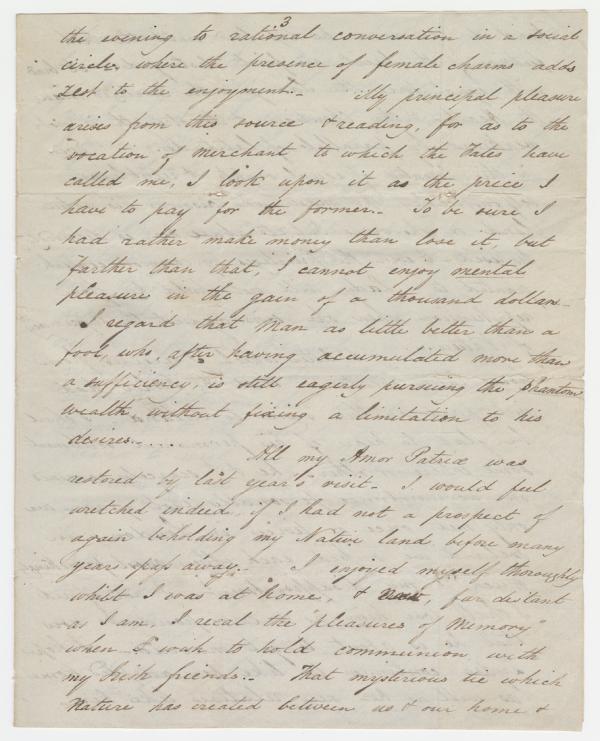 3
the evening to rational conversation in a social
circle, where the presence of female charms adds
zest to the enjoyment.- My principal pleasure
arises from this source & reading, for as to the
vocation of merchant to which the Fates have
called me, I look upon it as the price I
have to pay for the former.- To be sure I
had rather make money than lose it, but
farther than that, I cannot enjoy mental
pleasure in the gain of a thousand dollars-
I regard that Man as little better than a
fool, who, after having accumulated more than
a sufficiency, is still eagerly pursuing the phantom
wealth without fixing a limitation to his
desires.-...
All my Amor Patriæ was
restored by last year's visit- I would feel
wretched indeed if I had not a prospect of
again beholding my Native land before many
years pass away.- I enjoyed myself thoroughly
whilst I was at home, & , far distant
as I am, I recal the "pleasures of Memory"
when I wish to hold communion with
my Irish friends.- That mysterious tie which
Nature has created between us & our home &